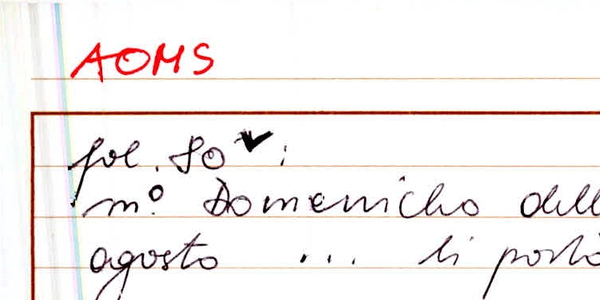 AOMS
fol. 80v:
m.o Domenicho dell
agosto ... li portò